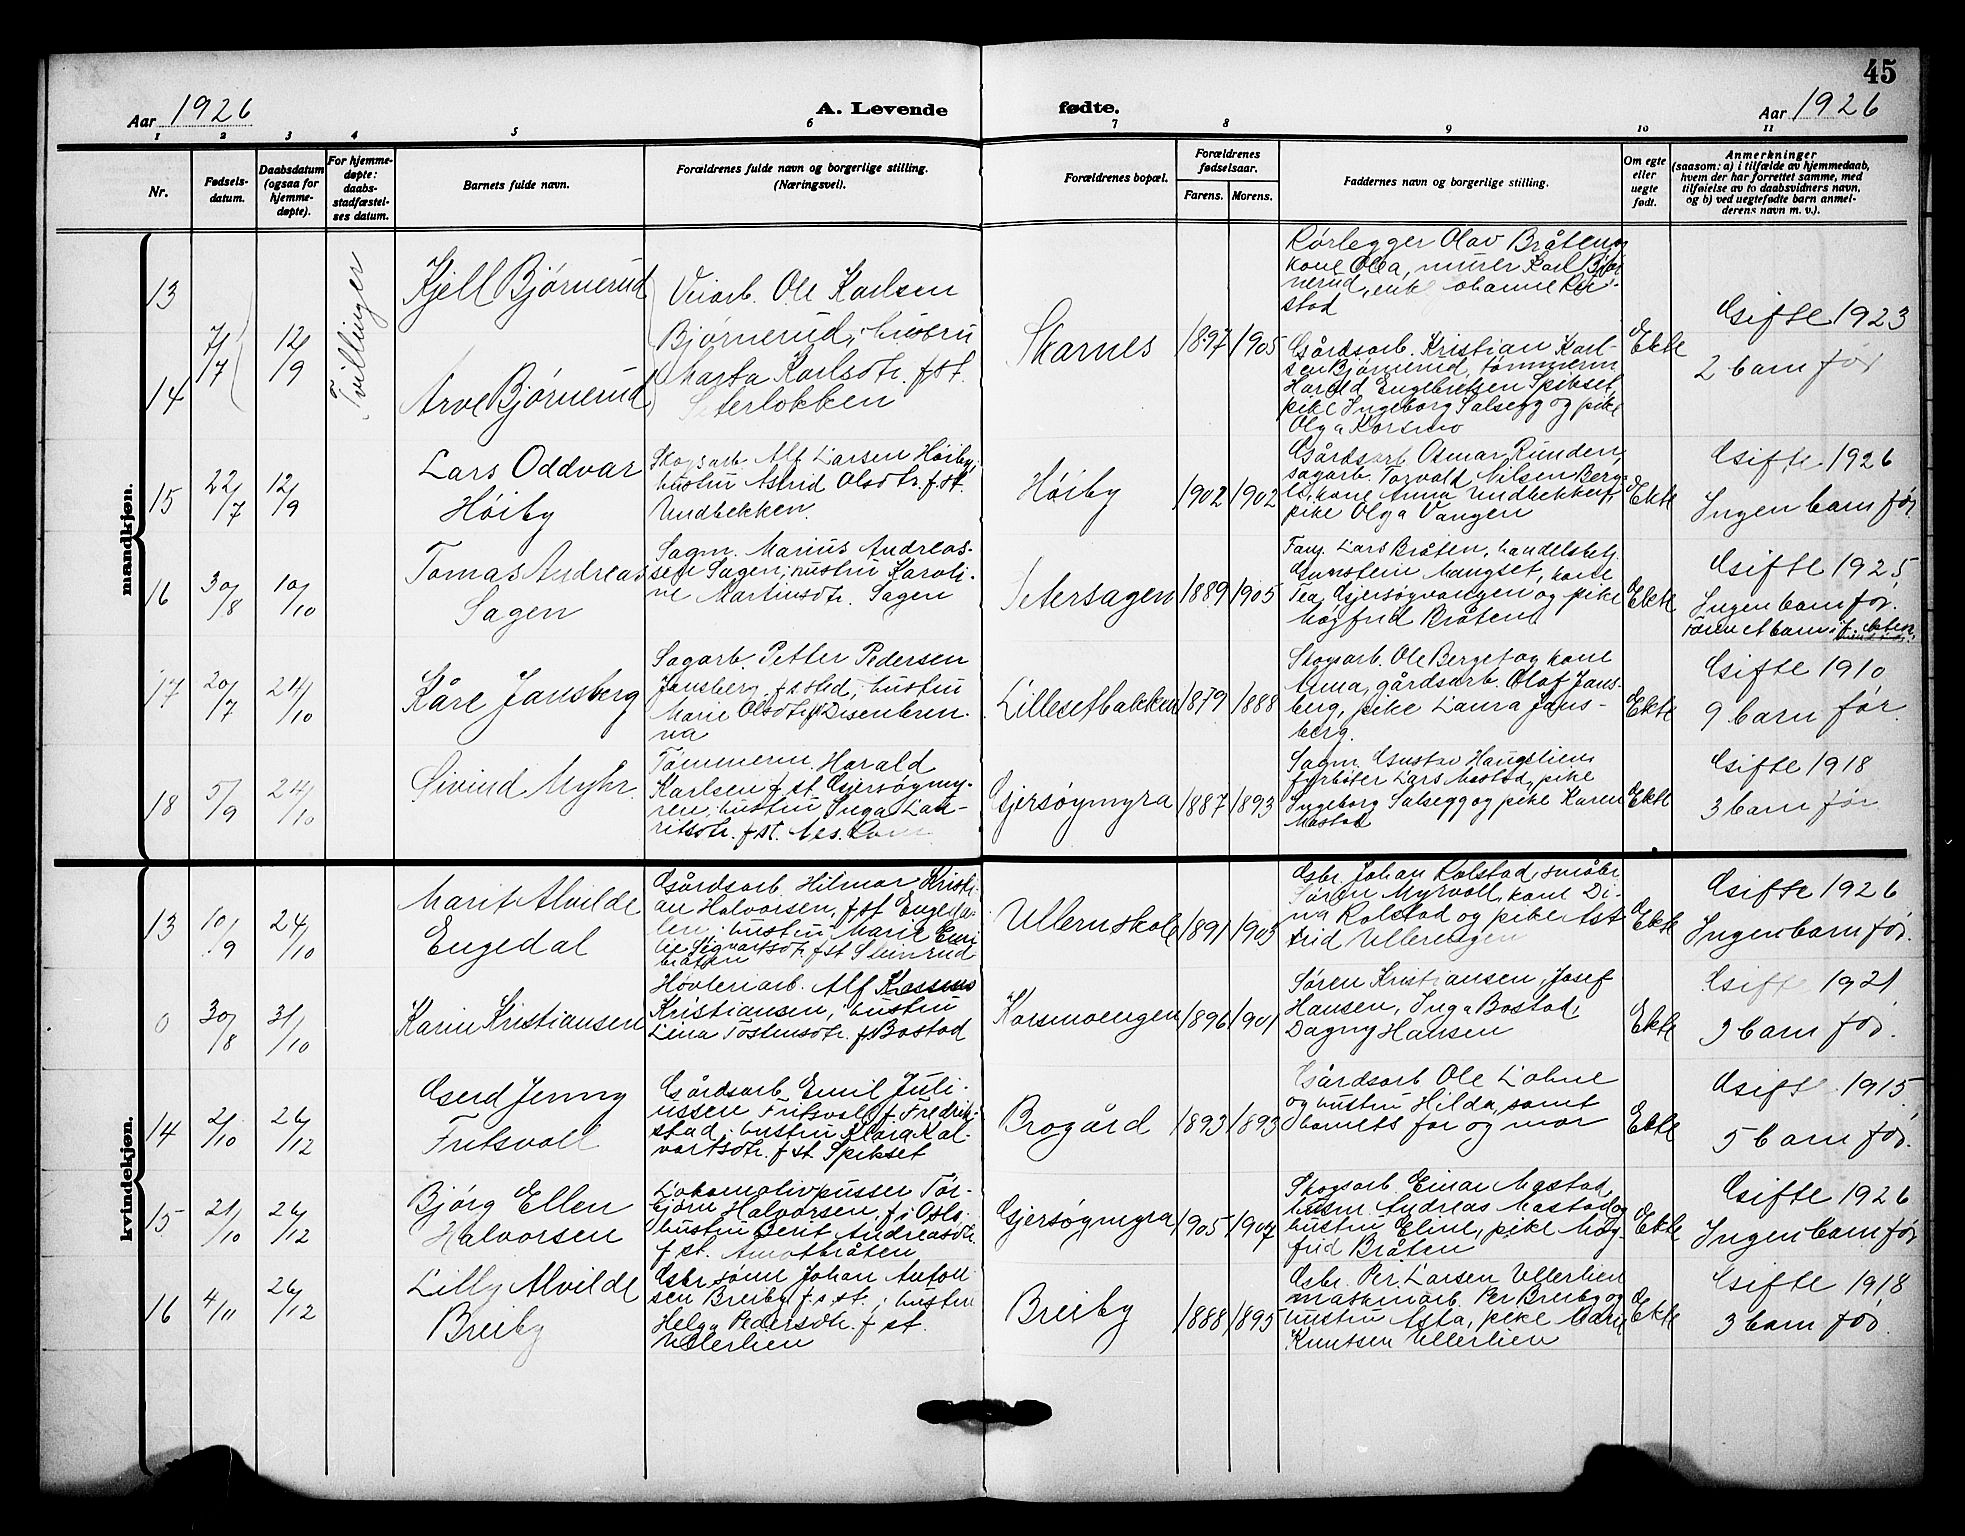 45
Aar 1926
A. Levende fødte.
Aar 1926
1 2 3 4 5 6 7 8 9 10 11
Nr.
Fødsels-
datum.
Daabsdatum
(ogsaa for
hjemme-
døpte).
For hjemme-
døpte:
daabs-
stadfæstel-
ses datum.
Barnets fulde navn.
Forældrenes fulde navn og borgerlige stilling.
(Næringsvei).
Forældrenes bopæl.
Forældrenes
fødselsaar.
Farens. Morens.
Faddernes navn og borgerlige stilling.
Om egte
eller
uegte
født.
Anmerkninger
(saasom: a) i tilfælde av hjemmedaab,
hvem der har forrettet samme, med
tilføielse av to daabsvidners navn,
og b) ved uegtefødte barn anmel-
derens navn m. v.).
mandkjøn.
13
14
7/7
12/9
Tvillinger
Kjell Bjørnerud
Arve Bjørnerud
Veiarb. Ole Karlsen
Bjørnerud, hustru
Marta Karlsdtr. f. st.
Seterlokken
Skarnes
1897 1905
Rørlegger Olav Bråten og
kone Olea, murer Karl Bjør
nerud, enke Johanne
stad
Gårdsarb. Kristian Karl-
sen Bjørnerud, tømmerm.
Harald Engebretsen Spikset,
pike Ingeborg Salsegg og pike
Olga Korsmo
Ekte
Gifte 1923
2 barn før
15
22/7
12/9
Lars Oddvar
Høiby
Skogsarb. Alf Larsen Høiby,
hustru Astrid Olsdtr. f. st.
Undbekken.
Høiby
1902 1902
Gårdsarb. Osmar Runden,
sagarb. Torvald Nilsen Berg-
li, kone Anna Undbekken,
pike Olga Vangen
Ekte
Gifte 1926
Ingen barn før.
16
30/8
10/10
Tomas Andreas
Sagen
Sagm. Marius Andreas-
sen Sagen; hustru Karoli-
ne Martinsdtr. Sagen
Setersagen
1889 1905
Fang. Lars Bråten, handelsbetj.
Gunstein Mangset, kone
Tea Gjersøyvangen og pike
Magfrid Bråten
Ekte
Gifte 1925
Ingen barn før.
17
20/7
24/10
Kåre Jansberg
Sagarb. Petter Pedersen
Jansberg f. s sted, hustru
Marie Olsdtr. fs Disenbren-
na
Lillesetbakken
1879 1888
Skogsarb. Ole Berget og kone
Anna, gårdsarb. Olaf Jans-
berg, pike Laura Jans-
berg.
Ekte
Gifte 1910
9 barn før.
18
5/9
24/10
Øivind Myhr.
Tømmerm. Harald
Karlsen f. st. Gjersøymy-
ren, hustru Inga Lau-
ritsdtr. f st. Nes. Rom
Gjersøymyra
1887 1893
Sagm. Gustav Haugslien
forbøter Lars Mastad, pike
Ingeborg Salsegg og pike Karen
Mastad
Ekte
Gifte 1918
3 barn før
kvindekjøn.
13
10/9
24/10
Marit Alvilde
Engedal
Gårdsarb. Hilmar Kristi-
an Halvorsen, f. st Engeda-
len, hustru Marie Emi
lie Sigvartsdtr. f. st Steinrud
bråten
Ullernskole
1891 1903
Gsbr. Johan Rolstad, småbr
Søren Myrvoll, kone Di-
na Rolstad og pike Ast
rid Ullerengen
Ekte
Gifte 1926
Ingen barn før.
0
30/8
31/10
Karin Kristiansen
Høvleriarb. Alf
Kristiansen, hustru
Lina Tostensdtr. fs Bostad
Korsmoengen
1896 1901
Søren Kristiansen, Josef
Hansen, Inga Bostad,
Dagny Hansen
Ekte
Gifte 1921
3 barn før.
14
2/10
26/12
Gerd Jenny
Fritsvoll
Gårdsarb Emil Juli-
ussen Fritsvoll f Fredrik-
stad, hustru Klara Kal-
vartsdtr. f st Spikset
Brogård
1893 1893
Gårdsarb Ole Lohne
og hustru Hilda, samt
barnets far og mor
Ekte
Gifte 1915
5 barn før.
15
21/10
26/12
Bjørg Ellen
Halvorsen
Lokomotivpusser Tor-
bjørn Halvorsen, f. i Oslo
hustru Berit Andreasdtr.
f st. Amotbråten
Gjersøymyra
1905 1907
Skogsarb. Einar Mastad,
husm. Andreas Mastad og
hustru Eline, pike Mag
frid Bråten
Ekte
Gifte 1926
Ingen barn før
16
4/11
26/12
Lilly Alvilde
Breiby
Gsbr. sønn Johan Anton
sen Breiby f. s st.; hustru
Helga Pedersdtr. f st.
Ullerlien
Breiby
1888 1895
Gsbr. Per Larsen Ullerlien
maskinarb. Per Breiby og
hustru Asta, pike Mary
Knutsen Ullerlien
Ekte
Gifte 1918
3 barn før.